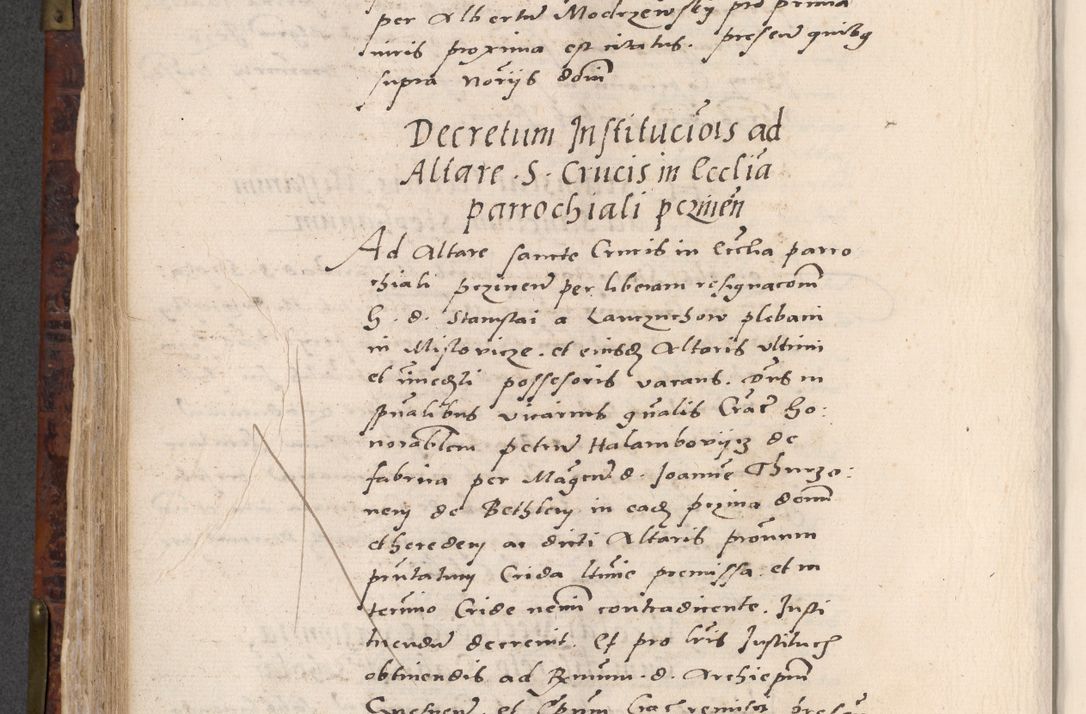 per Albertu Modrzewsky pro prima
iuris proxima est citatus. presen quibg
supra Norijs Dom
Decretum Instituciois ad
Altare S. Crucis in Ecclia
parrochiali pczinen
Ad Altare sancte Crucis in Ecclia parro
chiali pczinen per liberam resignacom
h. d. Stanislai a Lanczychow plebani
in Mislovicze. et eiusdz Altaris ultimi
et imedti possesoris vacans. Dns in
spualibus vicarius gnalis Crac ho:
norablem petru Halambowijcz de
fabrica per Magcu d. Joanne Thurzo:
nem de Bethlem in eadz pczina domi
et heredem ac dicti Altaris pronum
pntatum Crida ltime premissa. et in
termino Cride nemi contradicente. Insti
tuendu decrevit. Et pro lris Instituch
obtinendis ad Rmum. d. Archiepm
Gneznen et Epum Crac remisit presen